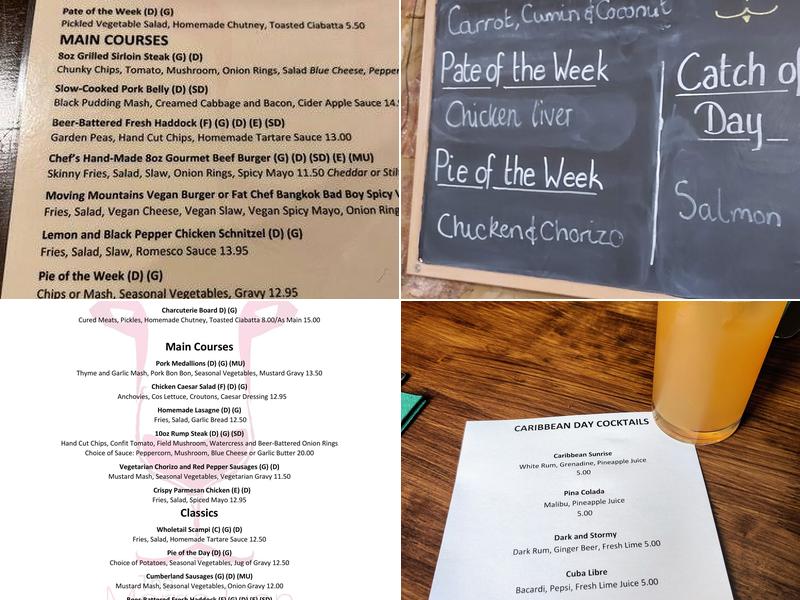 Pate of the Week (D) (G)
Pickled Vegetable Salad, Homemade Chutney, Toasted Ciabatta 5.50
MAIN COURSES
8oz Grilled Sirloin Steak (G) (D)
Chunky Chips, Tomato, Mushroom, Onion Rings, Salad Blue Cheese, Pepper
Slow-Cooked Pork Belly (D) (SD)
Black Pudding Mash, Creamed Cabbage and Bacon, Cider Apple Sauce 14.
Beer-Battered Fresh Haddock (F) (G) (D) (E) (SD)
Garden Peas, Hand Cut Chips, Homemade Tartare Sauce 13.00
Chef's Hand-Made 8oz Gourmet Beef Burger (G) (D) (SD) (E) (MU)
Skinny Fries, Salad, Slaw, Onion Rings, Spicy Mayo 11.50 Cheddar or Stil
Moving Mountains Vegan Burger or Fat Chef Bangkok Bad Boy Spicy V
Fries, Salad, Vegan Cheese, Vegan Slaw, Vegan Spicy Mayo, Onion Ring
Lemon and Black Pepper Chicken Schnitzel (D) (G)
Fries, Salad, Slaw, Romesco Sauce 13.95
Pie of the Week (D) (G)
Chips or Mash, Seasonal Vegetables, Gravy 12.95
Carrot, Cumin & Coconut
Pate of the Week
Chicken liver
Pie of the Week
Chicken & Chorizo
Catch of
Day
Salmon
Charcuterie Board D) (G)
Cured Meats, Pickles, Homemade Chutney, Toasted Ciabatta 8.00/As Main 15.00
Main Courses
Pork Medallions (D) (G) (MU)
Thyme and Garlic Mash, Pork Bon Bon, Seasonal Vegetables, Mustard Gravy 13.50
Chicken Caesar Salad (F) (D) (G)
Anchovies, Cos Lettuce, Croutons, Caesar Dressing 12.95
Homemade Lasagne (D) (G)
Fries, Salad, Garlic Bread 12.50
10oz Rump Steak (D) (G) (SD)
Hand Cut Chips, Confit Tomato, Field Mushroom, Watercress and Beer-Battered Onion Rings
Choice of Sauce: Peppercorn, Mushroom, Blue Cheese or Garlic Butter 20.00
Vegetarian Chorizo and Red Pepper Sausages (G) (D)
Mustard Mash, Seasonal Vegetables, Vegetarian Gravy 11.50
Crispy Parmesan Chicken (E) (D)
Fries, Salad, Spiced Mayo 12.95
Classics
Wholetail Scampi (C) (G) (D)
Fries, Salad, Homemade Tartare Sauce 12.50
Pie of the Day (D) (G)
Choice of Potatoes, Seasonal Vegetables, Jug of Gravy 12.50
Cumberland Sausages (G) (D) (MU)
Mustard Mash, Seasonal Vegetables, Onion Gravy 12.00
Beer-Battered Fresh Haddock (F) (G) (D) (E) (SD)
CARIBBEAN DAY COCKTAILS
Caribbean Sunrise
White Rum, Grenadine, Pineapple Juice
5.00
Pina Colada
Malibu, Pineapple Juice
5.00
Dark and Stormy
Dark Rum, Ginger Beer, Fresh Lime 5.00
Cuba Libre
Bacardi, Pepsi, Fresh Lime Juice 5.00